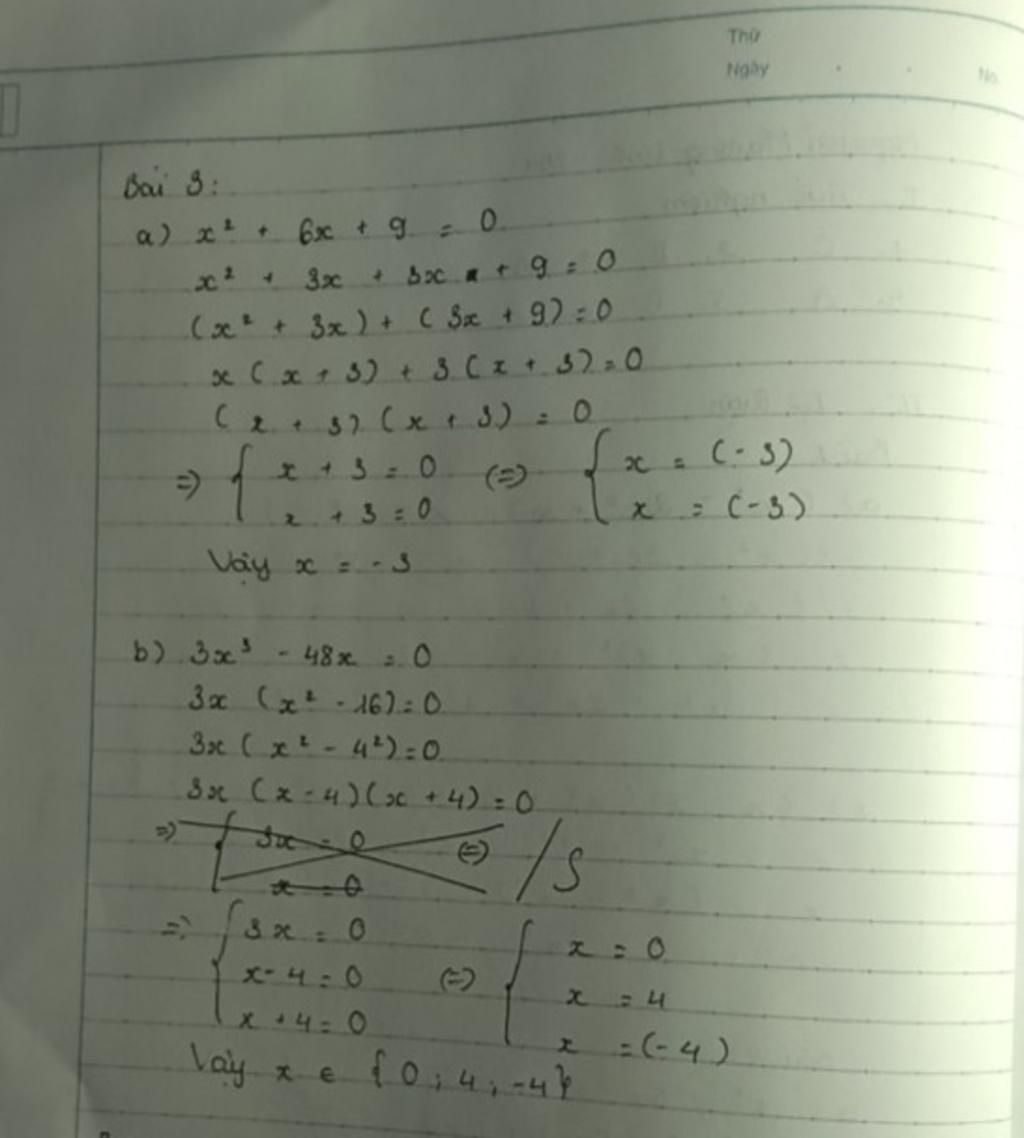 Thứ
Ngày . . No.
Bài 3:
a) x² + 6x + 9 = 0
x² + 3x + 3x + 9 = 0
(x² + 3x) + (3x + 9) = 0
x (x + 3) + 3 (x + 3) = 0
(x + 3) (x + 3) = 0
=> { x + 3 = 0 (=) { x = (-3)
x + 3 = 0 x = (-3)
Vậy x = -3
b) 3x³ - 48x = 0
3x (x² - 16) = 0
3x (x² - 4²) = 0
3x (x - 4)(x + 4) = 0
=> { 3x = 0 (=) / S
x = 0
=> { 3x = 0 { x = 0
x - 4 = 0 (=) x = 4
x + 4 = 0 x = (-4)
Vậy x ∈ {0 ; 4 ; -4}